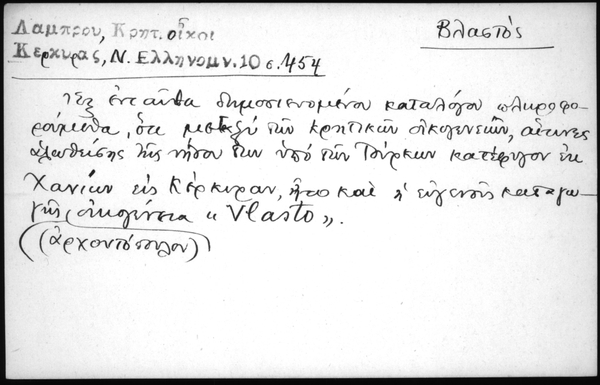 Λαμπρου, Κρητ. οἶκοι
Κερκυρας, Ν. Ελληνομν. 10 σ. 454
Βλαστὸς
Ἐξ ἐνταῦθα δημοσιευομένου καταλόγου πληροφο-
ρούμεθα, ὅτι μεταξύ τῶν κρητικῶν οἰκογενειῶν, αἵτινες
ἁλωθείσης τῆς νήσου των ὑπό τῶν Τούρκων κατέφυγον ἐκ
Χανίων εἰς Κέρκυραν, ἦτο καὶ ἡ εὐγενοῦς καταγω-
γῆς οἰκογένεια « Vlasto ».
(ἀρχοντόπουλον)